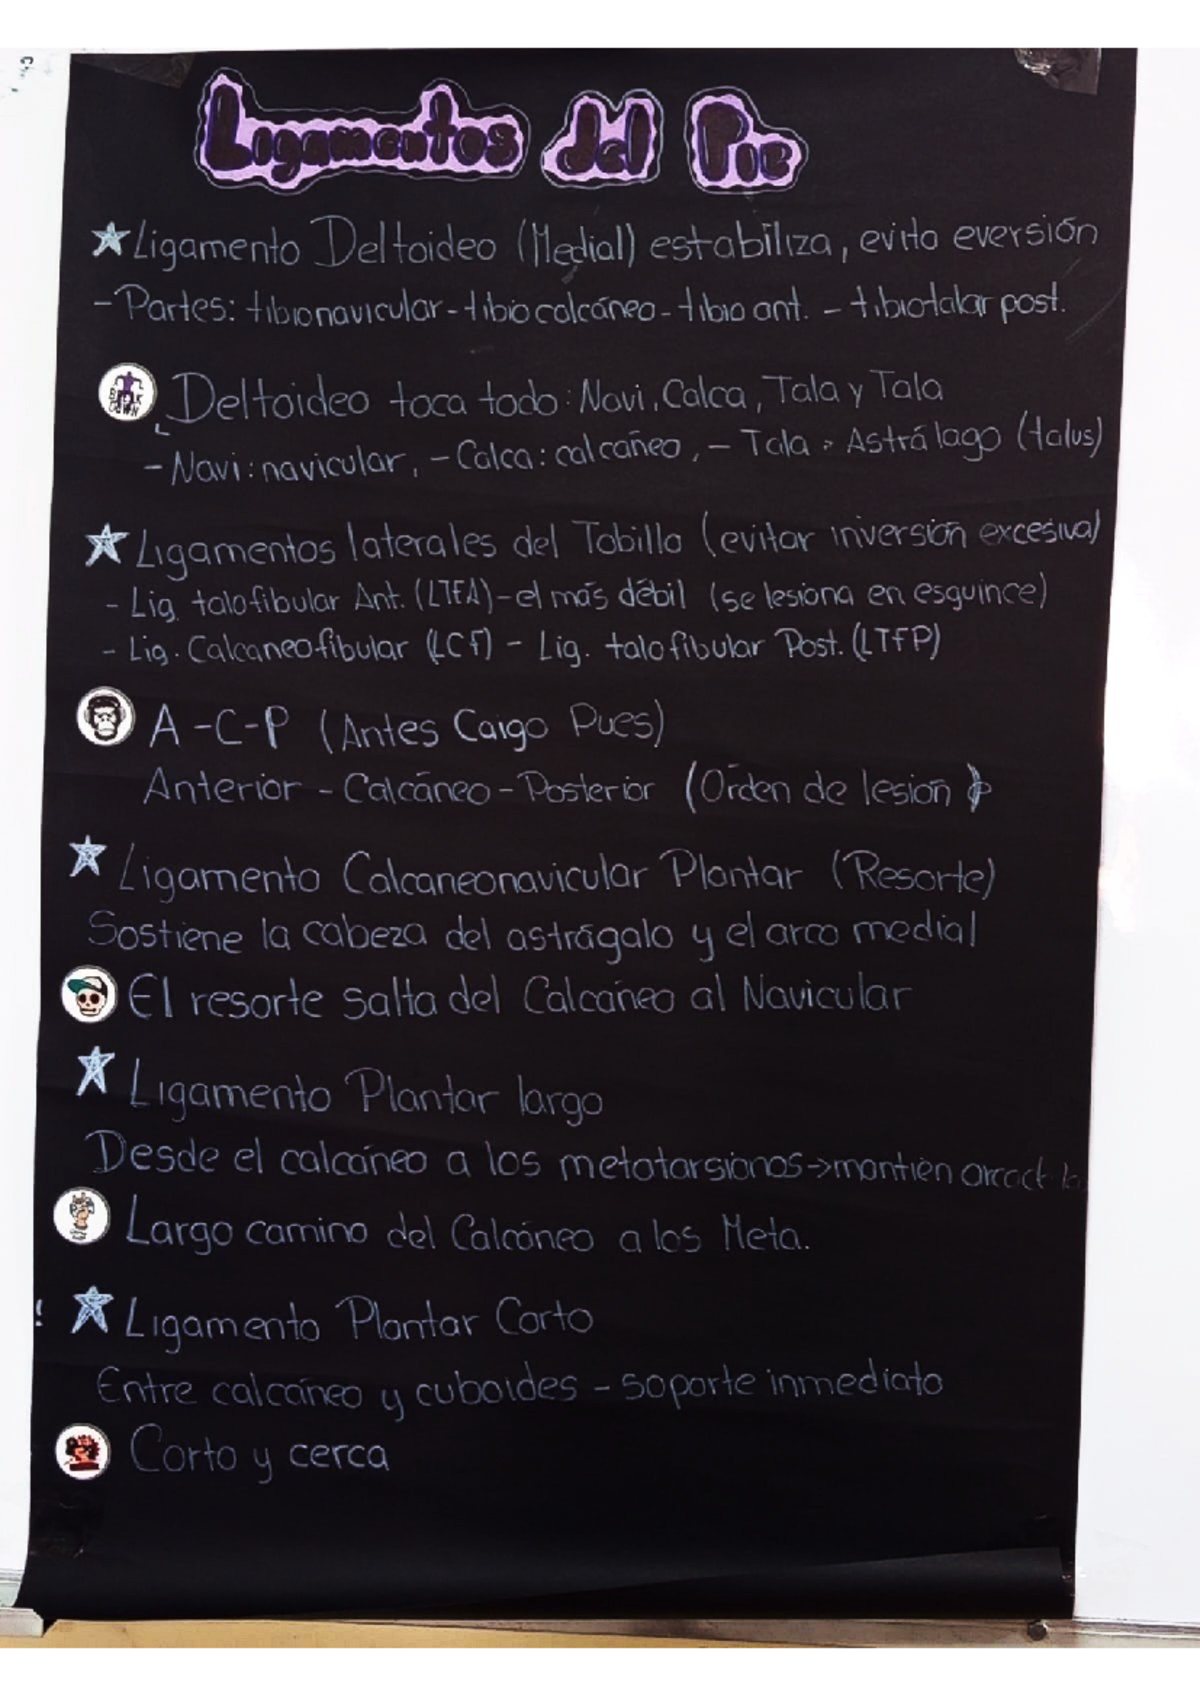 Ligamentos del Pie
Ligamento Deltoideo (Medial) estabiliza, evita eversión
- Partes: tibionavicular - tibiocalcáneo - tibio ant. - tibiotalar post.
Deltoideo toca todo: Navi, Calca, Tala y Tala
- Navi: navicular, - Calca: calcañeo, - Tala = Astrálago (talus)
Ligamentos laterales del Tobillo (evitar inversión excesiva)
- Lig. talofibular Ant. (LTFA) - el más débil (se lesiona en esguince)
- Lig. Calcaneofibular (LCF) - Lig. talofibular Post. (LTFP)
A - C - P (Antes Caigo Pues)
Anterior - Calcáneo - Posterior (Orden de lesión)
Ligamento Calcaneonavicular Plantar (Resorte)
Sostiene la cabeza del astrágalo y el arco medial
El resorte salta del Calcáneo al Navicular
Ligamento Plantar largo
Desde el calcáneo a los metatarsionos -> mantien
Largo camino del Calcáneo a los Meta.
Ligamento Plantar Corto
Entre calcáneo y cuboides - soporte inmediato
Corto y cerca